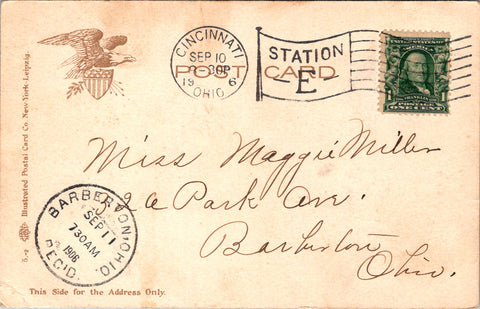 Illustrated Postal Card Co. New York-Leipzig.
CINCINNATI
SEP 10
19 6
OHIO
STATION
E
POST CARD
POSTAGE
ONE CENT
Miss Maggie Miller
2a Park Ave.
Barberton
Ohio.
BARBERTON, OHIO.
SEP 11
730 AM
1906
REC'D.
This Side for the Address Only.